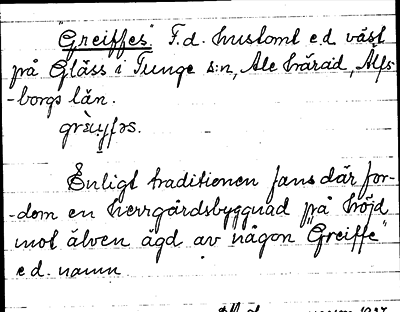 "Greiffes". F.d. hustomt e.d. väst
på Gläss i Tunge s:n, Ale härad, Älfs-
-borgs län.
grὰɪyfəs.
Enligt traditionen fans där for-
-dom en herrgårdsbyggnad på höjd
mot älven ägd av någon "Greiffe"
e.d. namn